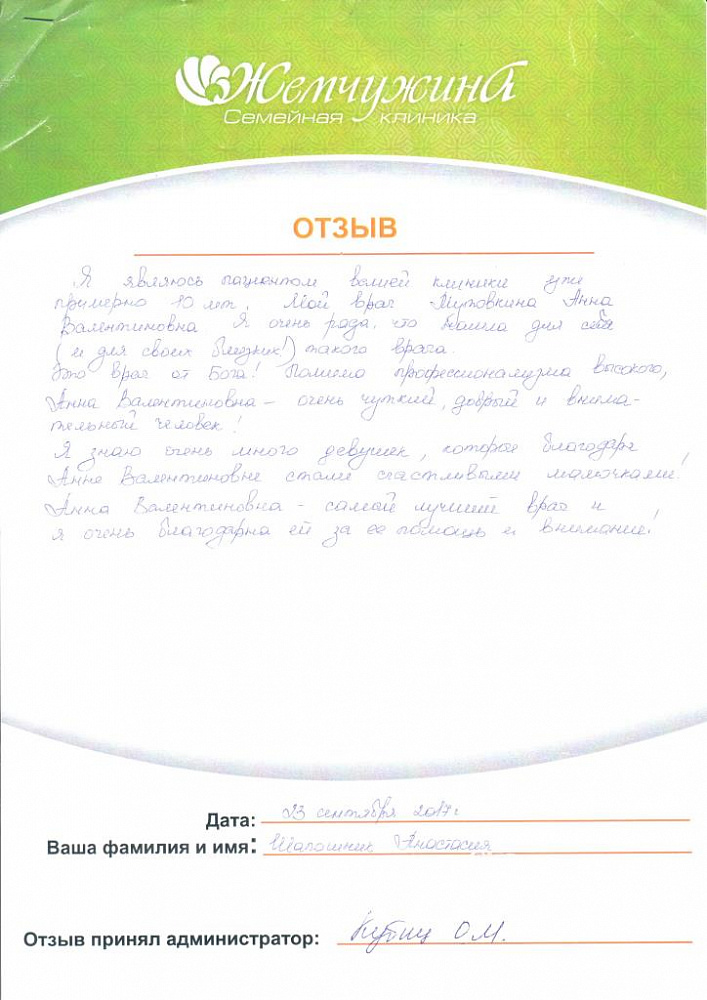 Жемчужина
Семейная клиника
ОТЗЫВ
Я являюсь пациентом вашей клиники уже
примерно 10 лет. Мой врач Анна
Валентиновна Я очень рада, что нашла для себя
(и для своих близких!) такого врача.
Это врач от Бога! Помимо профессионализма высокого,
Анна Валентиновна – очень чуткий, добрый и внима-
тельный человек!
Я знаю очень много девушек, которые благодаря
Анне Валентиновне стали счастливыми мамочками!
Анна Валентиновна – самый лучший врач и
я очень благодарна ей за ее помощь и внимание!
Дата: 23 сентября 2017г
Ваша фамилия и имя: Шапошник Анастасия
Отзыв принял администратор: О.М.